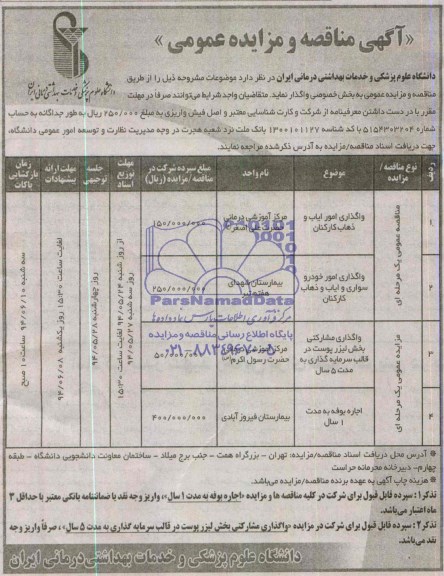 «آگهی مناقصه و مزایده عمومی»
دانشگاه علوم پزشکی و خدمات بهداشتی درمانی ایران
دانشگاه علوم پزشکی و خدمات بهداشتی درمانی ایران در نظر دارد موضوعات مشروحه ذیل را از طریق
مناقصه و مزایده عمومی به بخش خصوصی واگذار نماید. متقاضیان واجد شرایط می‌توانند صرفا در مهلت
مقرر با در دست داشتن معرفینامه از شرکت و کارت شناسایی معتبر و اصل فیش واریزی به مبلغ ۲۵۰/۰۰۰ ریال به طور جداگانه به حساب
شماره ۵۱۵۴۳۰۳۲۰۴ با کد شناسه ۱۳۰۰۱۰۱۱۲۷ بانک ملت نزد شعبه هجرت در وجه مدیریت نظارت و توسعه امور عمومی دانشگاه،
جهت دریافت اسناد مناقصه/مزایده به آدرس ذکرشده مراجعه نمایند.
ردیف
نوع مناقصه/مزایده
موضوع
نام واحد
مبلغ سپرده شرکت در مناقصه/مزایده (ریال)
مهلت توزیع اسناد
جلسه توجیهی
مهلت ارائه پیشنهادات
زمان بازگشایی پاکات
۱
مناقصه عمومی یک مرحله ای
واگذاری امور ایاب و ذهاب کارکنان
مرکز آموزشی درمانی حضرت علی اصغر
۱۵۰/۰۰۰/۰۰۰
از روز شنبه ۹۴/۰۵/۲۴ لغایت ساعت ۱۵:۳۰
سه شنبه ۹۴/۰۵/۲۷
روز چهارشنبه ۹۴/۰۵/۲۸
لغایت ساعت ۱۵:۳۰ روز یکشنبه ۹۴/۰۶/۰۸
سه شنبه ۹۴/۰۶/۱۰ ساعت ۱۰ صبح
۲
واگذاری امور خودرو سواری و ایاب و ذهاب کارکنان
بیمارستان شهدای هفتم تیر
۲۵۰/۰۰۰/۰۰۰
۳
مزایده عمومی یک مرحله ای
واگذاری مشارکتی بخش لیزر پوست در قالب سرمایه گذاری به مدت ۵ سال
مرکز آموزشی درمانی حضرت رسول اکرم
۴
اجاره بوفه به مدت ۱ سال
بیمارستان فیروز آبادی
۴۰۰/۰۰۰/۰۰۰
ParsNamadData
پایگاه اطلاع رسانی مناقصه و مزایده
۰۲۱-۸۸۳۴۹۶۷۰-۵
* آدرس محل دریافت اسناد مناقصه/مزایده: تهران - بزرگراه همت - جنب برج میلاد - ساختمان معاونت دانشجویی دانشگاه - طبقه
چهارم- دبیرخانه محرمانه حراست
* هزینه چاپ آگهی به عهده برنده مناقصه/مزایده می‌باشد.
تذکر ۱: سپرده قابل قبول برای شرکت در کلیه مناقصه ها و مزایده «اجاره بوفه به مدت ۱ سال»، واریز وجه نقد یا ضمانتنامه بانکی معتبر با حداقل ۳
ماه اعتبار می‌باشد.
تذکر ۲: سپرده قابل قبول برای شرکت در مزایده «واگذاری مشارکتی بخش لیزر پوست در قالب سرمایه گذاری به مدت ۵ سال»، صرفا واریز وجه
نقد می‌باشد.
دانشگاه علوم پزشکی و خدمات بهداشتی درمانی ایران